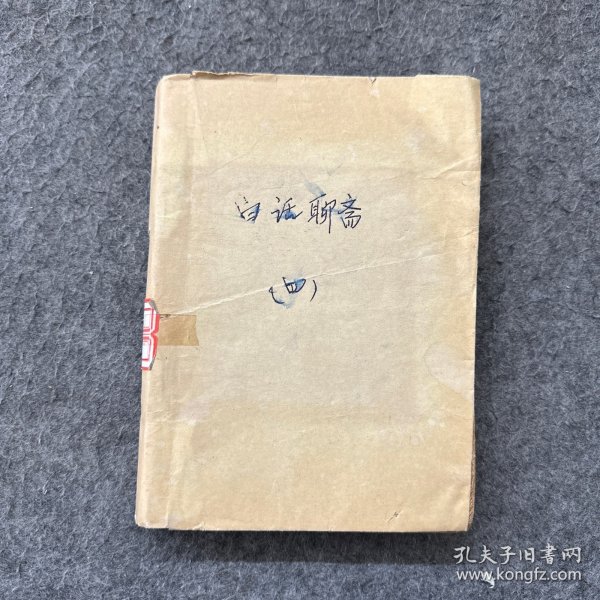 白话聊斋
(四)
孔夫子旧書网
www.kongfz.com